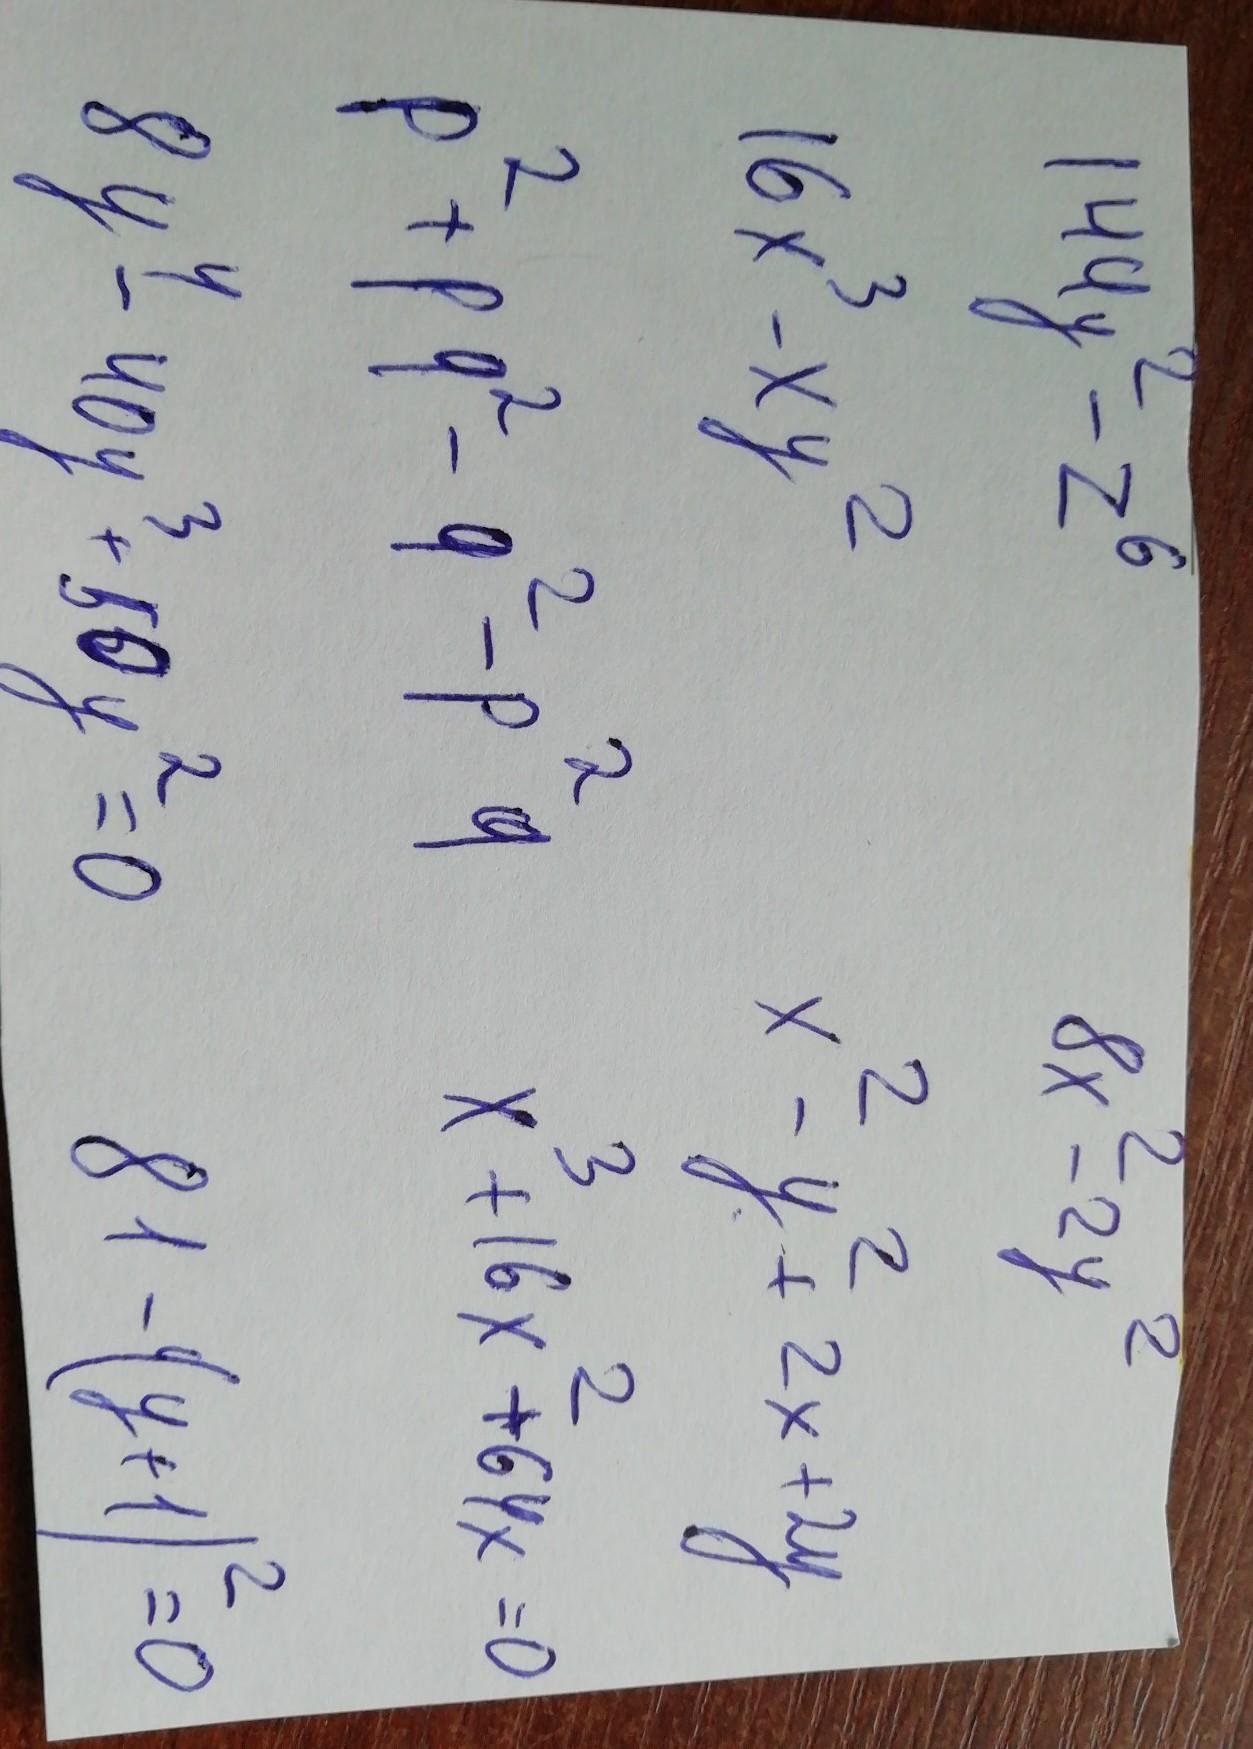 144y² - z⁶ 8x² - 2y²
16x³ - xy² x² - y² + 2x + 2y
p² + pq² - q² - p²q x³ + 16x² + 64x = 0
8y⁴ - 40y³ + 50y² = 0 81 - (y + 1)² = 0